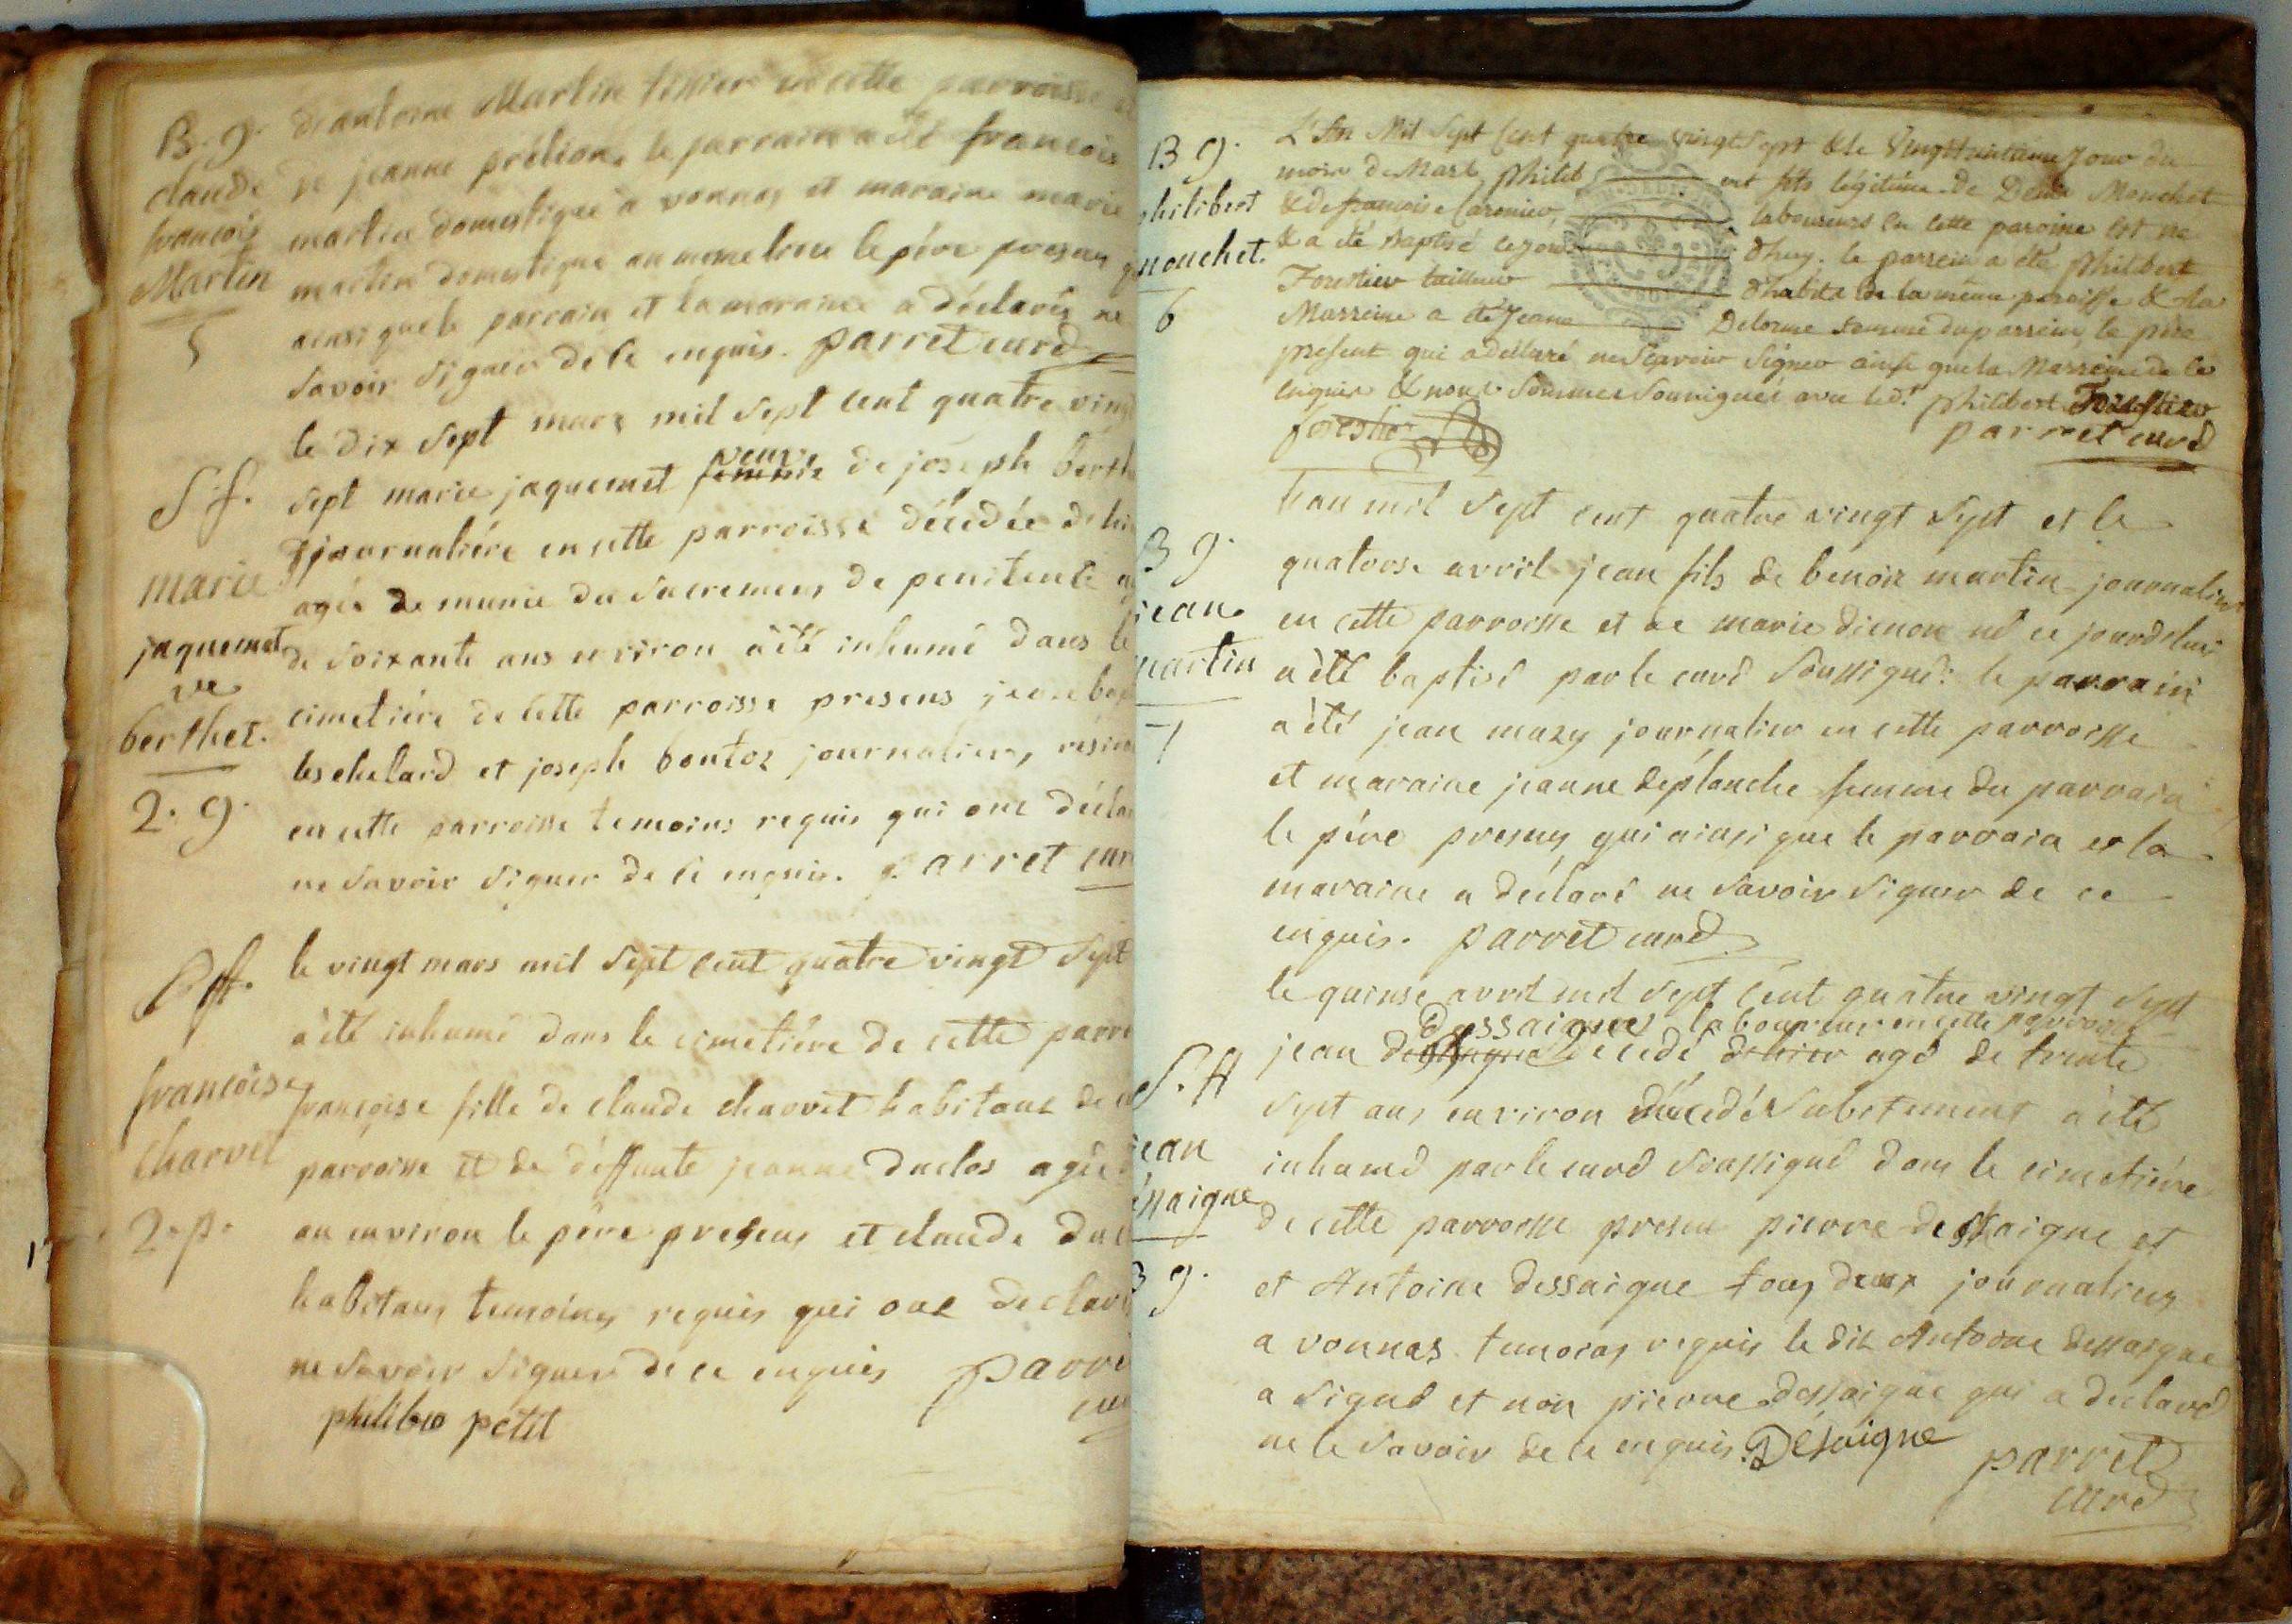 B. g.
claude
françois
Martin
5
d'antoine Martin tissier en cette parroisse
de jeanne prélion. le parrain a été francois
martin domestique a vonnas et maraine marie
martin domestique au meme lieu le père presens
ainsi que le parrain et la maraine a déclarés ne
savoir signer de ce enquis. parret curé
S. f.
marie
jaquemet
ve
berthet.
2. g.
le dix sept mars mil sept cent quatre vingt
sept marie jaquemet femme veuve de joseph berth
journalière en cette parroisse décédée d'hi
agée de munie du sacremens de penitence
de soixante ans environ a été inhumé dans le
cimetière de cette parroisse presens jean bap
leschelard et joseph boutoz journaliers, resid
en cette parroisse temoins requis qui ont décla
ne savoir signer de ce enquis. parret cur
S. ff.
françoise
charvet
2. p.
le vingt mars mil sept cent quatre vingt sept
a été inhumé dans le cimetière de cette parr
françoise fille de claude charvet habitant de
parroisse et de deffunte jeanne duclos agée d
an environ le père presens et claude du
habitans temoins requis qui ont declar
ne savoir signer de ce enquis parre
cur
philiber petit
B g.
philibert
mouchet.
6
L'An Mil Sept Cent quatre vingt Sept & le Vingthuitieme Jour du
mois de Mars Philib ert fils légitime de Denis Mouchet
& de francoise Caronier, laboureurs en cette paroisse est né
& a été Baptisé ce jour d'huy. le parrein a été Philibert
Forestier tailleur d'habits de la même paroisse & la
Marreine a été Jeane Delorme femme du parrein, le père
present qui a déclaré ne Sçavoir Signer ainsi que la Marreine de ce
enquis & nous Sommes Soussignés avec led.t philibert Forestier
forestier parret curé
B g.
jean
martin
7
l'an mil sept cent quatre vingt sept et le
quatorse avril jean fils de benoit martin journalier
en cette parroisse et de marie dienon né ce jourd'hui
a été baptisé par le curé soussigné: le parrain
a été jean mazy journalier en cette parroisse
et maraine jeanne deplanche femme du parrain
le père presens qui ainsi que le parrain et la
maraine a déclaré ne savoir signer de ce
enquis. parret curé
S. ff
jean
dessaigne
B g.
le quinse avril mil sept cent quatre vingt sept
Dessaigne laboureur en cette parroisse
jean décédé d'hier agé de trente
sept ans environ décédé subitement a été
inhumé par le curé soussigné dans le cimetière
de cette parroisse presens pierre dessaigne et
et Antoine dessaigne tous deux journaliers
a vonnas temoins requis le dit Antoine dessaigne
a signé et non pierre dessaigne qui a declaré
ne le savoir de ce enquis. Désaigne
parret
curé